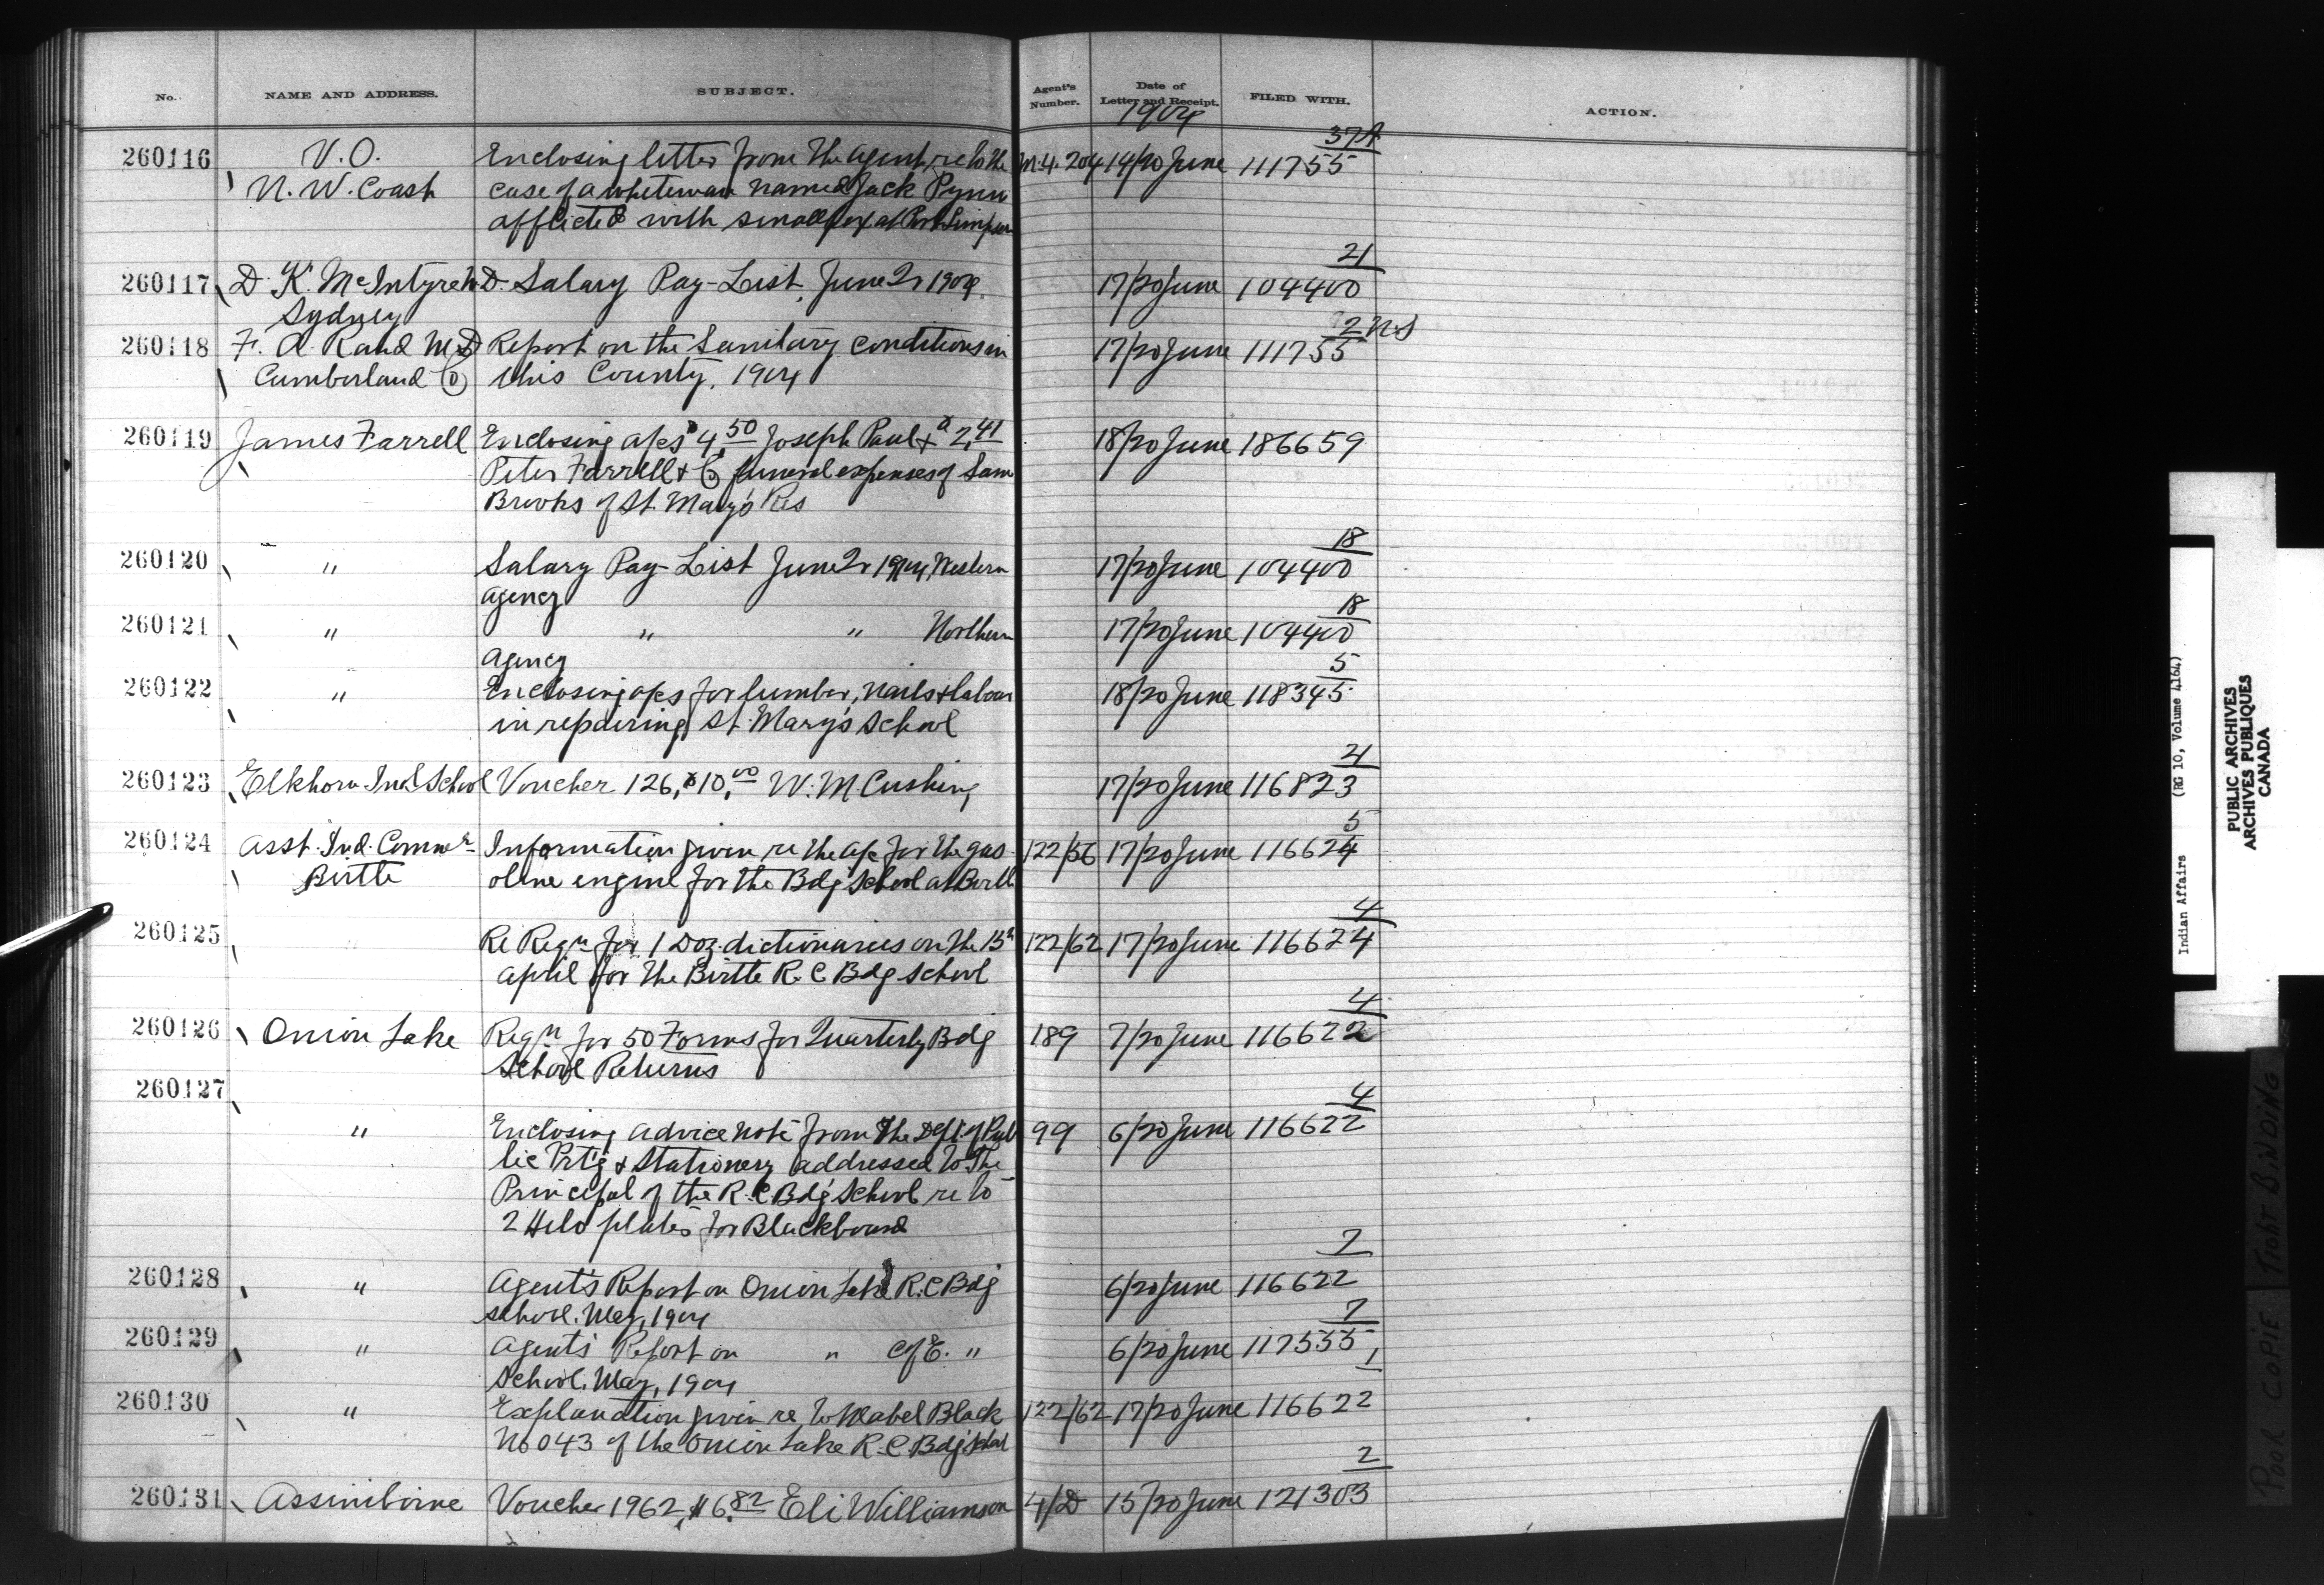 No. NAME AND ADDRESS. SUBJECT. Agent's Number. Date of Letter and Receipt. FILED WITH. ACTION.
1904
37A
260116 V.O. Enclosing letter from the Agent, re to the M.4.204 14/20 June 111755
N.W. Coast case of a whiteman named Jack Pynn
afflicted with smallpox at Port Simpson
21
260117 D. K. McIntyre M.D. Salary Pay-List, June Qr 1904. 17/20 June 104400
Sydney
2 N.S
260118 F. A. Rand M.D Report on the Sanitary conditions in 17/20 June 111755
Cumberland Co this County, 1904
260119 James Farrell Enclosing a/cs $4.50 Joseph Paul + $2.41 18/20 June 186659
Peter Farrell & Co funeral expenses of Sam
Brooks of St. Mary's Res
18
260120 " Salary Pay-List June Qr 1904, Western 17/20 June 104400
Agency
18
260121 " " " Northern 17/20 June 104400
Agency
5
260122 " Enclosing a/cs for lumber, nails & labour 18/20 June 118345
in repairing St. Mary's School
21
260123 Elkhorn Ind. School Voucher 126, $10.00 W. M. Cushing 17/20 June 116823
5
260124 Asst. Ind. Commr Information given re the a/c for the gas- 122/56 17/20 June 116624
Birtle oline engine for the Bdg School at Birtle
4
260125 Re Reqn for 1 Doz. dictionaries on the 15th 122/62 17/20 June 116624
April for the Birtle R.C Bdg School
4
260126 Onion Lake Reqn for 50 Forms for Quarterly Bdg 189 7/20 June 116622
School Returns
260127
4
" Enclosing advice note from the Dept. of Pub 99 6/20 June 116622
lic Prt'g & Stationery addressed to The
Principal of the R.C. Bdg School re to
2 Helo plates for Blackboard
7
260128 " Agent's Report on Onion Lake R.C Bdg 6/20 June 116622
School. May, 1904
7
260129 " Agent's Report on " C of E. " 6/20 June 117555
School. May, 1904
1
260130 " Explanation given re to Mabel Black 122/62 17/20 June 116622
No 043 of the Onion Lake R.C Bdg School
2
260131 Assiniboine Voucher 1962, $6.82 Eli Williamson 4/D 15/20 June 121303
Indian Affairs (RG 10, Volume 4164)
PUBLIC ARCHIVES
ARCHIVES PUBLIQUES
CANADA
POOR COPIE TIGHT BINDING